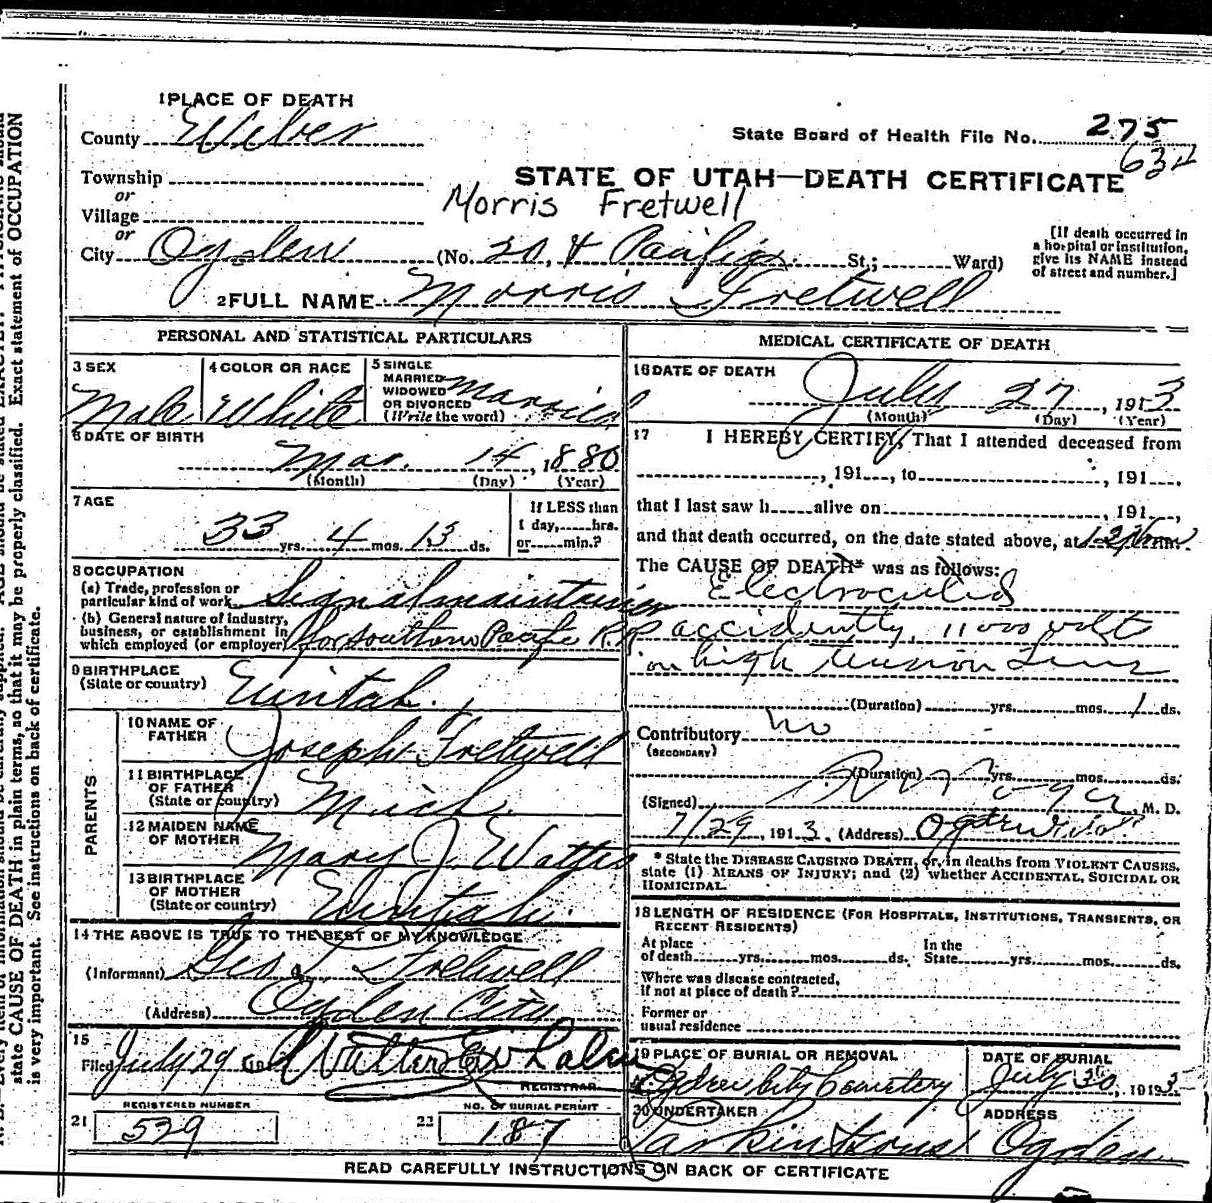 1 PLACE OF DEATH
County Weber
State Board of Health File No. 275
634
Township
or
Village
or
STATE OF UTAH—DEATH CERTIFICATE
Morris Fretwell
City Ogden (No. 20. & Pacific St.; Ward)
[If death occurred in
a hospital or institution,
give its NAME instead
of street and number.]
2 FULL NAME Morris Fretwell
PERSONAL AND STATISTICAL PARTICULARS
3 SEX
Male
4 COLOR OR RACE
White
5 SINGLE
MARRIED
WIDOWED
OR DIVORCED
(Write the word)
Married
6 DATE OF BIRTH
Mar. 14, 1880
(Month) (Day) (Year)
7 AGE
33 yrs. 4 mos. 13 ds.
If LESS than
1 day, hrs.
or min.?
8 OCCUPATION
(a) Trade, profession or
particular kind of work Signal maintainer
(b) General nature of industry,
business, or establishment in
which employed (or employer) for Southern Pacific R.R
9 BIRTHPLACE
(State or country)
Uintah.
PARENTS
10 NAME OF
FATHER
Joseph Fretwell
11 BIRTHPLACE
OF FATHER
(State or country)
Mich.
12 MAIDEN NAME
OF MOTHER
Mary J. Wattis
13 BIRTHPLACE
OF MOTHER
(State or country)
Uintah.
14 THE ABOVE IS TRUE TO THE BEST OF MY KNOWLEDGE
(Informant) Fretwell
(Address) Ogden City
15
Filed July 29 191 Walter
REGISTRAR
REGISTERED NUMBER
21 529
NO. OF BURIAL PERMIT
22 187
MEDICAL CERTIFICATE OF DEATH
16 DATE OF DEATH
July 27, 1913
(Month) (Day) (Year)
17 I HEREBY CERTIFY, That I attended deceased from
, 191 , to , 191
that I last saw h alive on , 191 ,
and that death occurred, on the date stated above, at 12 m.
The CAUSE OF DEATH* was as follows:
Electrocuted
accidently, 11000 volt
on high tension Line
(Duration) yrs. mos. 1 ds.
Contributory no
(SECONDARY)
(Duration) yrs. mos. ds.
(Signed) , M. D.
7/29, 1913. (Address) Ogden
* State the DISEASE CAUSING DEATH, or, in deaths from VIOLENT CAUSES,
state (1) MEANS OF INJURY; and (2) whether ACCIDENTAL, SUICIDAL OR
HOMICIDAL.
18 LENGTH OF RESIDENCE (FOR HOSPITALS, INSTITUTIONS, TRANSIENTS, OR
RECENT RESIDENTS)
At place
of death yrs. mos. ds.
In the
State yrs. mos. ds.
Where was disease contracted,
if not at place of death?
Former or
usual residence
19 PLACE OF BURIAL OR REMOVAL
Ogden City Cemetery
DATE OF BURIAL
July 30, 191
20 UNDERTAKER
ADDRESS
Ogden
READ CAREFULLY INSTRUCTIONS ON BACK OF CERTIFICATE
state CAUSE OF DEATH in plain terms, so that it may be properly classified. Exact statement of OCCUPATION
is very important. See instructions on back of certificate.